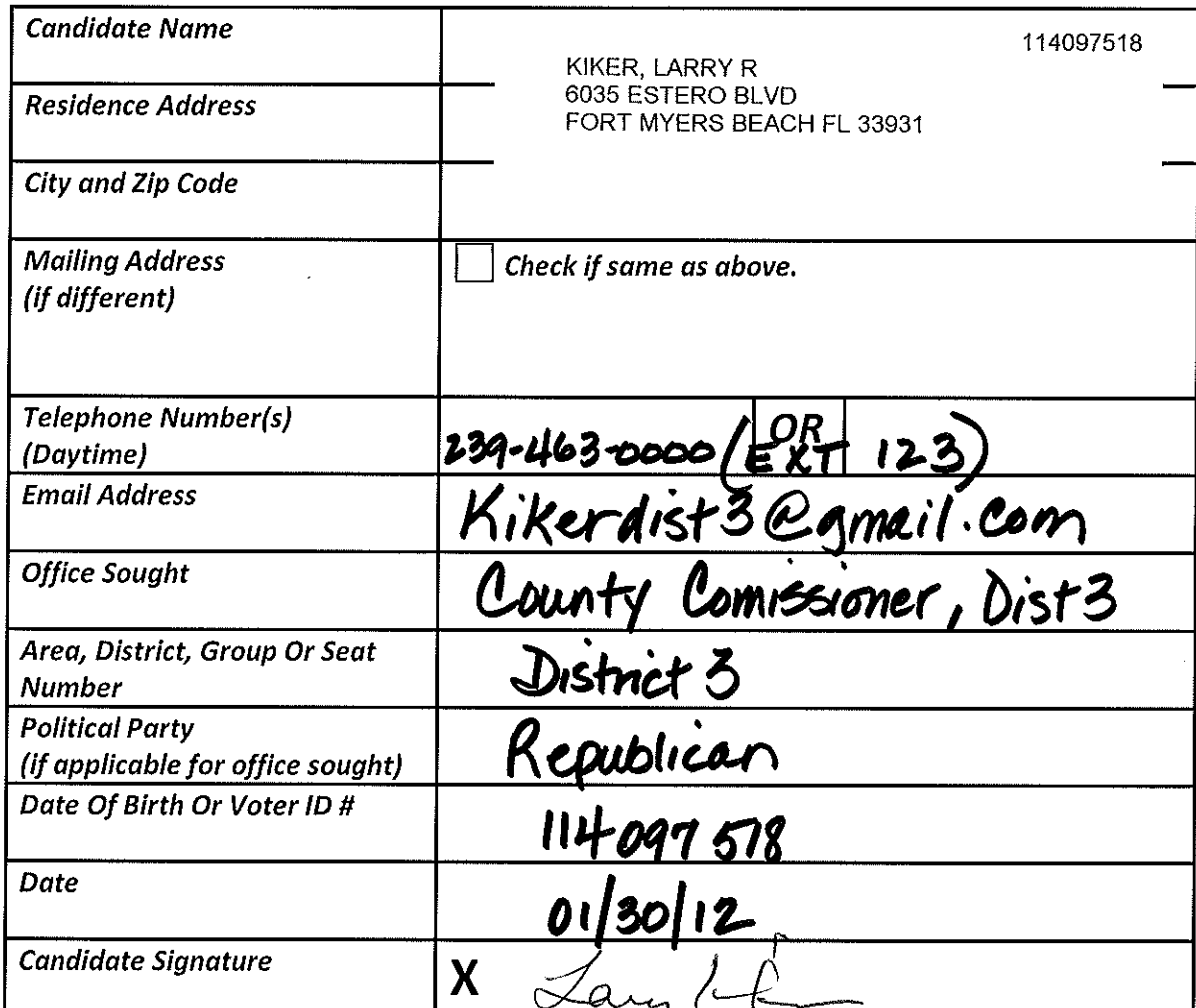 Candidate Name
114097518
KIKER, LARRY R
Residence Address
6035 ESTERO BLVD
FORT MYERS BEACH FL 33931
City and Zip Code
Mailing Address
(if different)
Check if same as above.
Telephone Number(s)
(Daytime)
239-463-0000 (OR EXT 123)
Email Address
Kikerdist3@gmail.com
Office Sought
County Comissioner, Dist 3
Area, District, Group Or Seat
Number
District 3
Political Party
(if applicable for office sought)
Republican
Date Of Birth Or Voter ID #
114 097 518
Date
01/30/12
Candidate Signature
X Larry Kiker